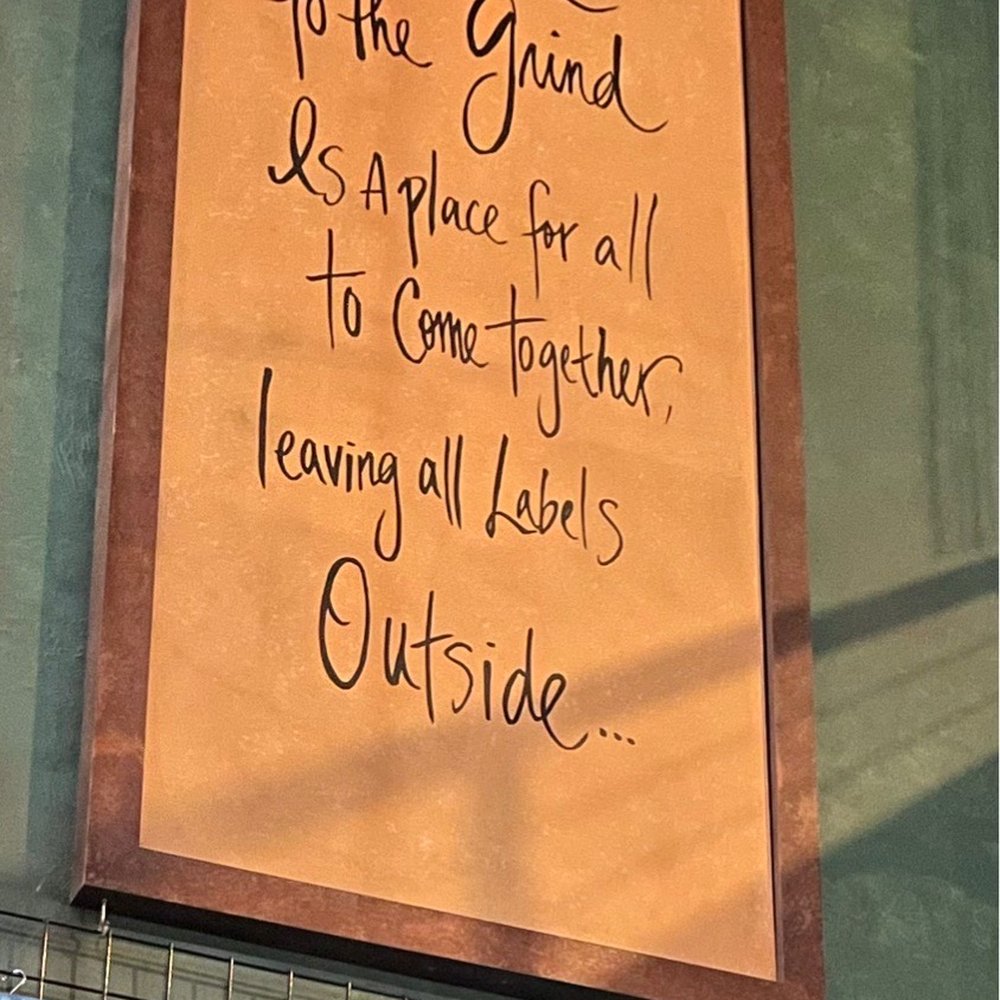 To the Grind
Is A place for all
to Come together,
leaving all Labels
Outside...